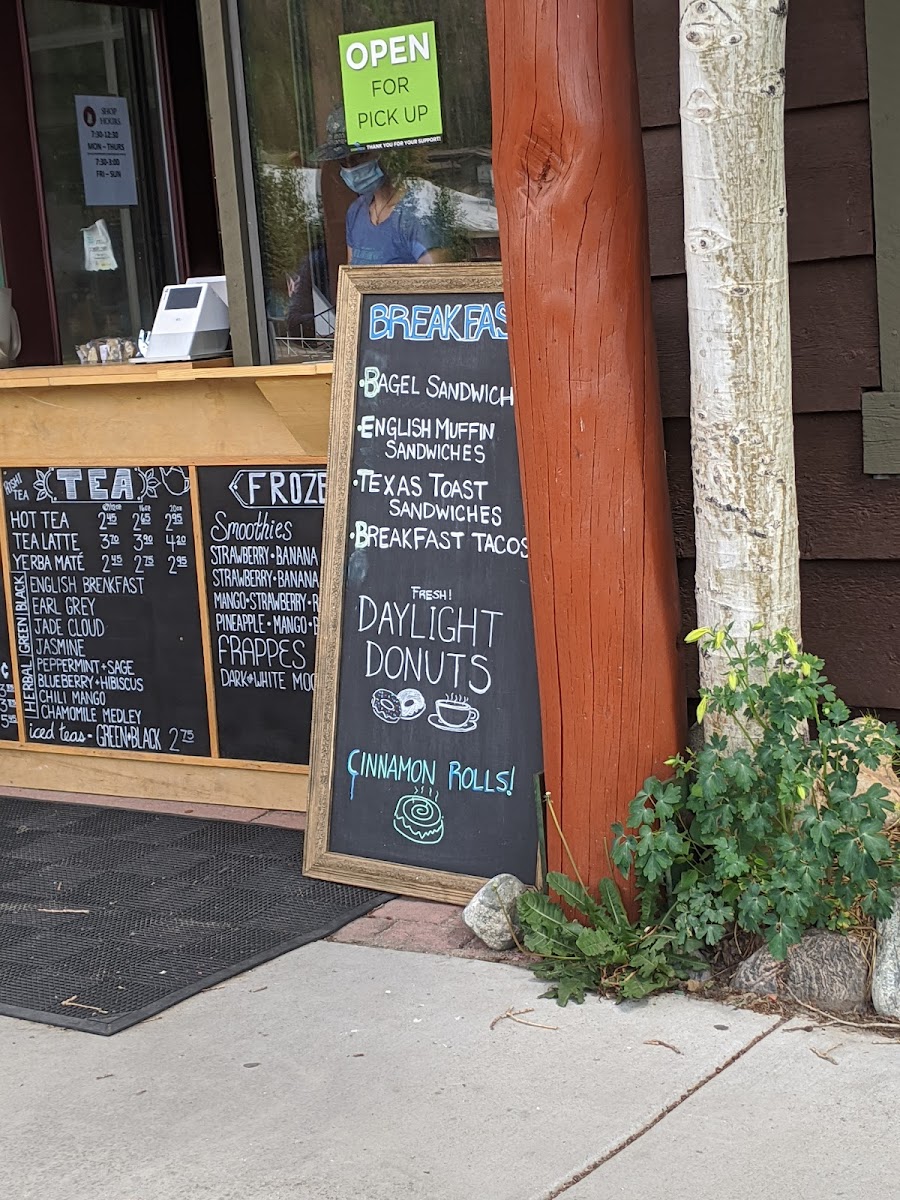 OPEN
FOR
PICK UP
THANK YOU FOR YOUR SUPPORT!
SHOP
HOURS
7:30-12:30
MON - THURS
7:30-3:00
FRI - SUN
BREAKFAS
·BAGEL SANDWICH
·ENGLISH MUFFIN
SANDWICHES
·TEXAS TOAST
SANDWICHES
·BREAKFAST TACOS
FRESH!
DAYLIGHT
DONUTS
CINNAMON ROLLS!
RISHI
TEA
TEA
12oz 16oz 20oz
HOT TEA 2.45 2.65 2.95
TEA LATTE 3.70 3.90 4.20
YERBA MATE 2.45 2.75 2.95
BLACK
ENGLISH BREAKFAST
EARL GREY
GREEN
JADE CLOUD
JASMINE
HERBAL
PEPPERMINT+SAGE
BLUEBERRY+HIBISCUS
CHILI MANGO
CHAMOMILE MEDLEY
iced teas - GREEN+BLACK 2.75
FROZE
Smoothies
STRAWBERRY·BANANA
STRAWBERRY·BANANA
MANGO·STRAWBERRY·
PINEAPPLE·MANGO·
FRAPPES
DARK OR WHITE MOC